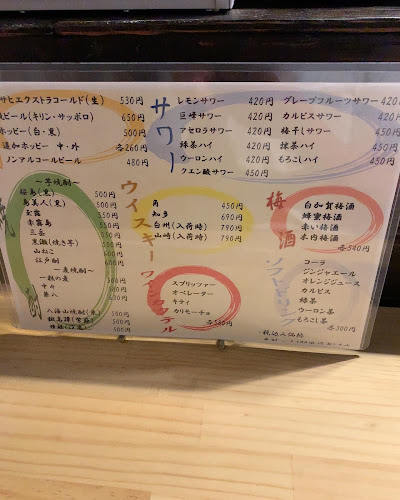 サヒエクストラコールド(生) 530円
ビール(キリン・サッポロ) 650円
ホッピー(白・黒) 500円
追加ホッピー 中・外 各260円
ノンアルコールビール 480円
サワー
レモンサワー 420円
巨峰サワー 420円
アセロラサワー 420円
緑茶ハイ 420円
ウーロンハイ 420円
クエン酸サワー 450円
グレープフルーツサワー 420円
カルピスサワー 420円
梅干しサワー 450円
抹茶ハイ 450円
もろこしハイ 450円
〜芋焼酎〜
桜島(黒) 500円
島美人(黒) 500円
玉露
赤霧島
三岳
黒瀬(焼き芋)
山ねこ
江戸酎
〜麦焼酎〜
一粒の麦
中々
兼八
八海山焼酎(米)
ウイスキー
角 450円
知多 690円
白州(入荷時) 790円
山崎(入荷時) 790円
ワインカクテル
スプリッツァー
オペレーター
キティ
カリモーチョ
梅酒
白加賀梅酒
蜂蜜梅酒
赤い梅酒
木内梅酒
各540円
ソフトドリンク
コーラ
ジンジャエール
オレンジジュース
カルピス
緑茶
ウーロン茶
もろこし茶
各300円